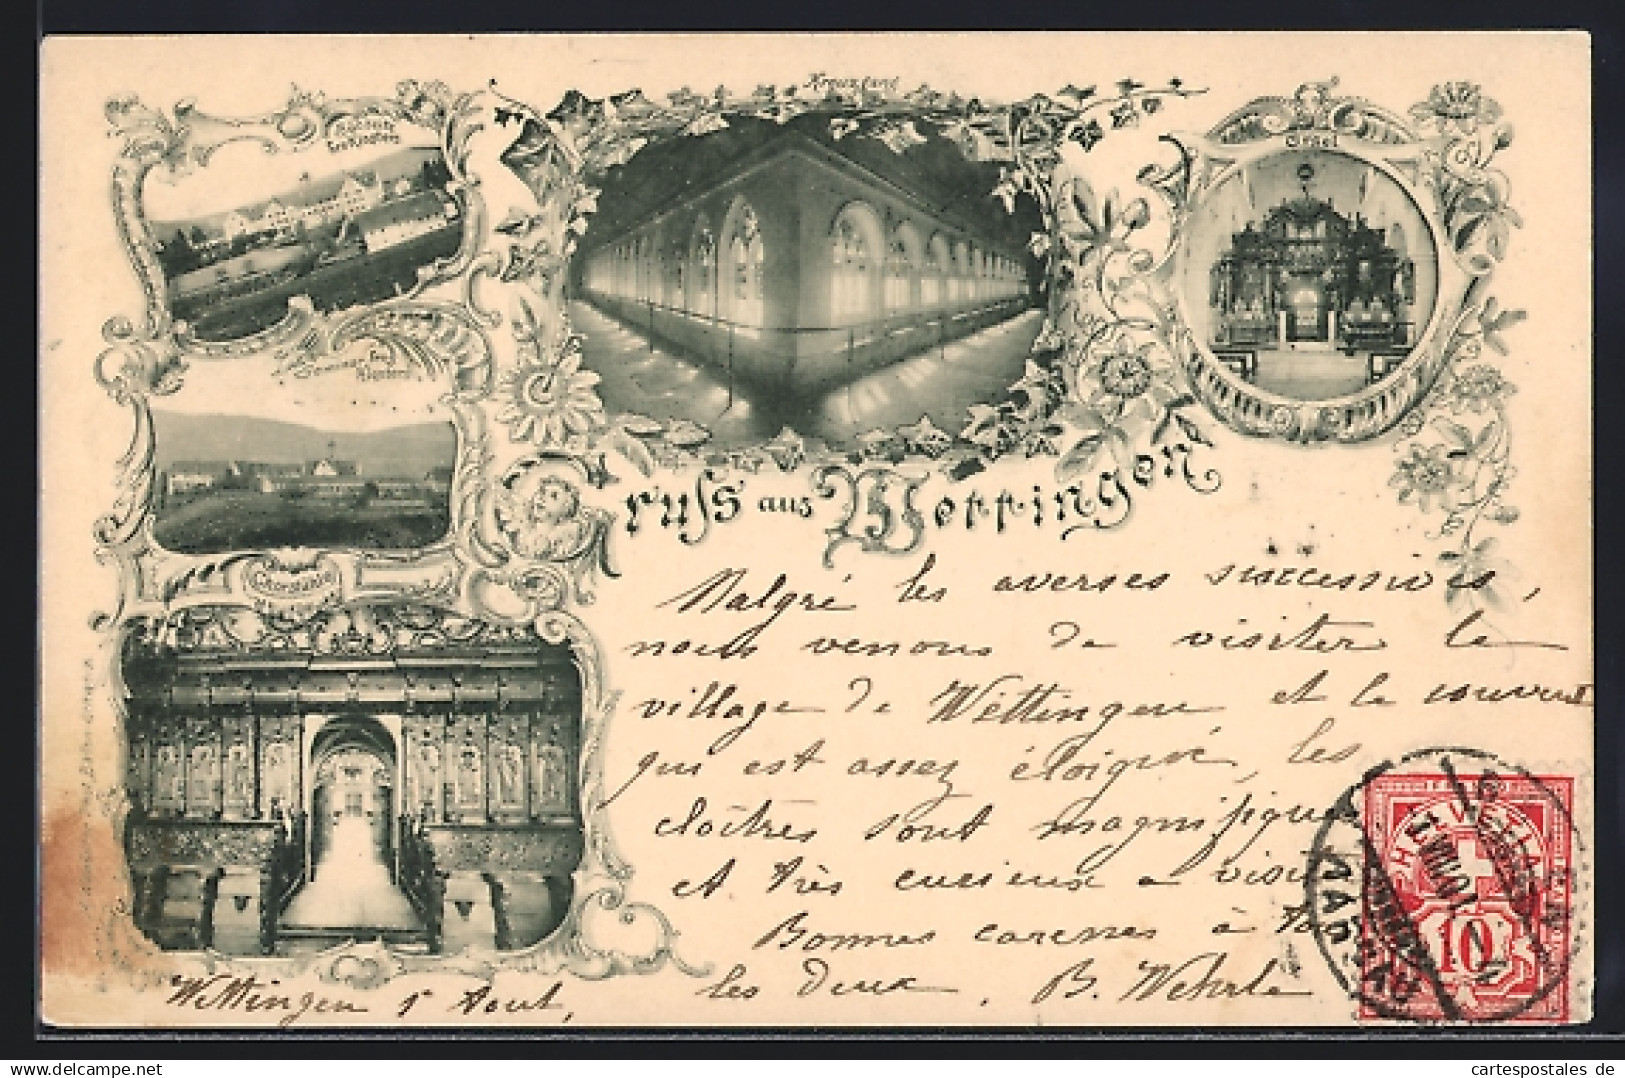 Kreuzgang
Orgel
Chorstühle
Gruss aus Wettingen
Malgré les averses successives,
nous venons de visiter le
village de Wettingen et le couvent
qui est assez éloigné, les
cloîtres sont magnifiques
et très curieux a
Bonnes caresses à
les deux. B. Wehrle
Wettingen 1r Aout,
HELVETIA
10
AARGAU
cartespostales de